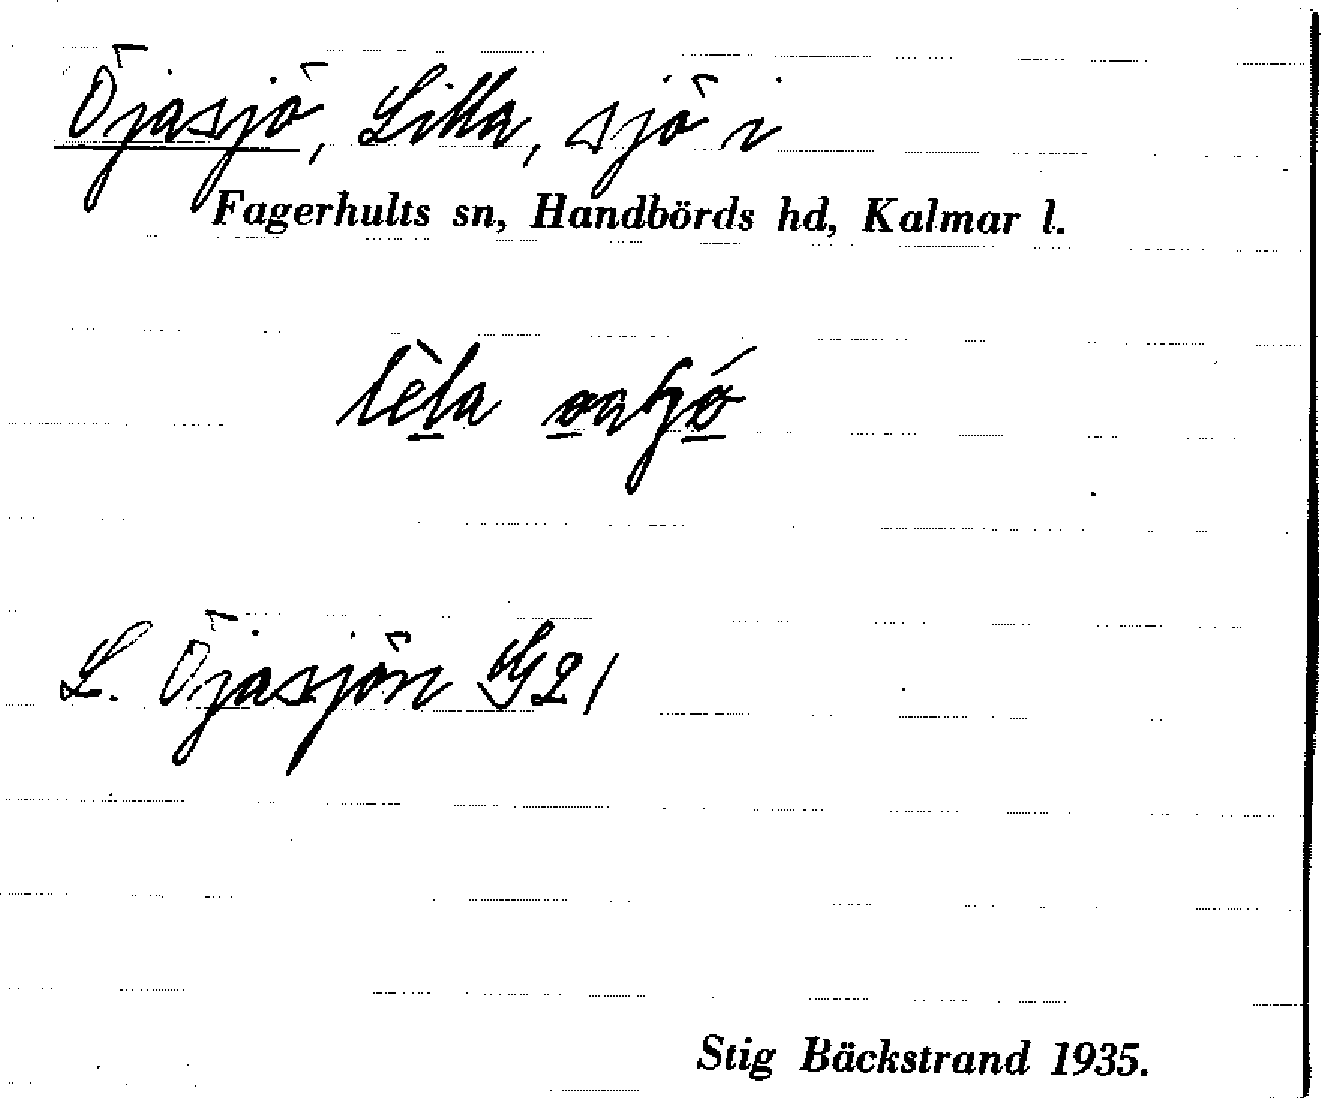 Öjasjö, Lilla, sjö i
Fagerhults sn, Handbörds hd, Kalmar l.
lèla
L. Öjasjön GS 21
Stig Bäckstrand 1935.